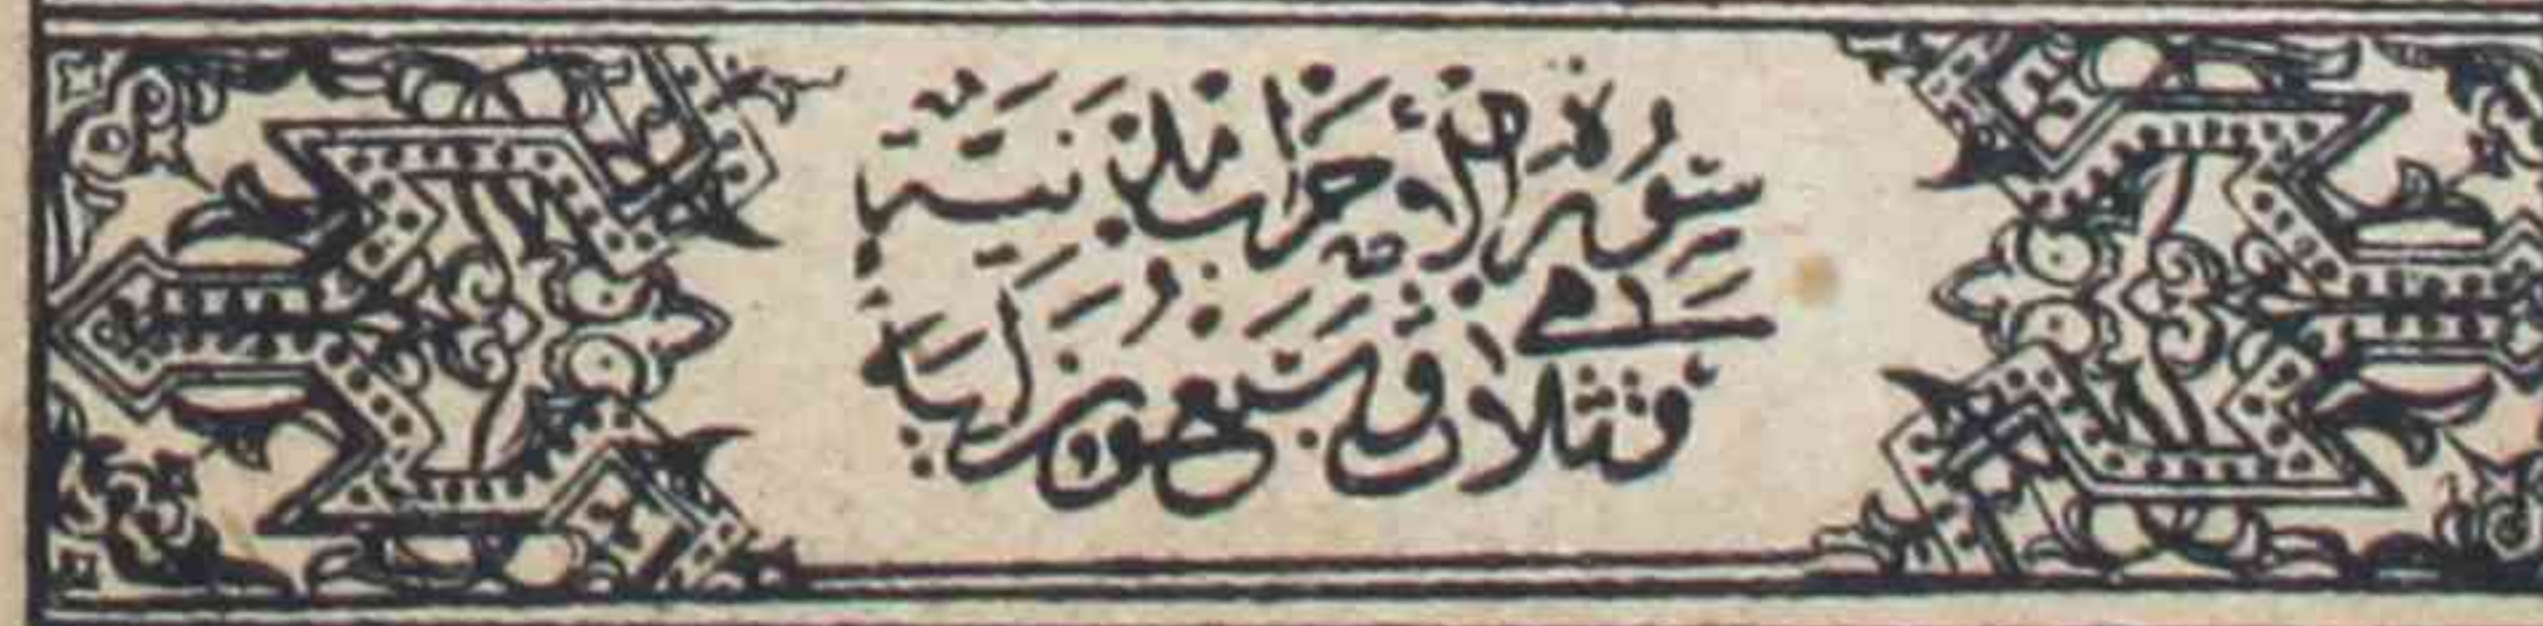 سورة الاحزاب مدنية
وهي ثلاث وسبعون اية